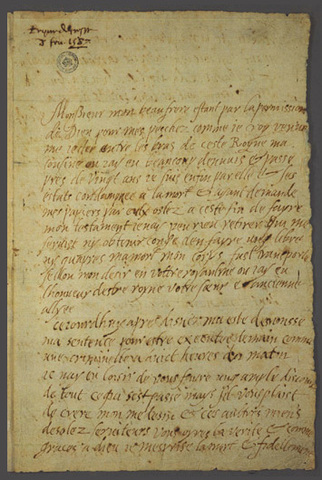 Monsieur mon beau frere estant par la permission
de Dieu pour mes peschez comme ie croy venue
me iecter entre les bras de ceste Royne ma
cousine ou iay eu beaucoup dennuis & passe
pres de vingt ans ie suis enfin par elle & ses
estats condampnee a la mort & ayant demande
mes papiers par eulx ostez a ceste fin de fayre
mon testament ie nay peu rien retirer qui me
servist ny obtenir conge den fayre ung libre
ny quapres ma mort mon corps fust transporte
sellon mon desir en votre royaulme ou iay eu
lhonneur destre royne votre sœur & ancienne
allyee
Ceiourdhuy apres disner ma este desnonsse
ma sentence pour estre executee demain comme
une criminelle a huict heures du matin
ie nay eu loisir de vous fayre ung ample discours
de tout ce qui sest passe mays sil vous plaist
de crere mon medesin & ces aultres miens
desolez seruiteurs vous oyres la verite & comme
graces a dieu ie mesprise la mort & fidellement